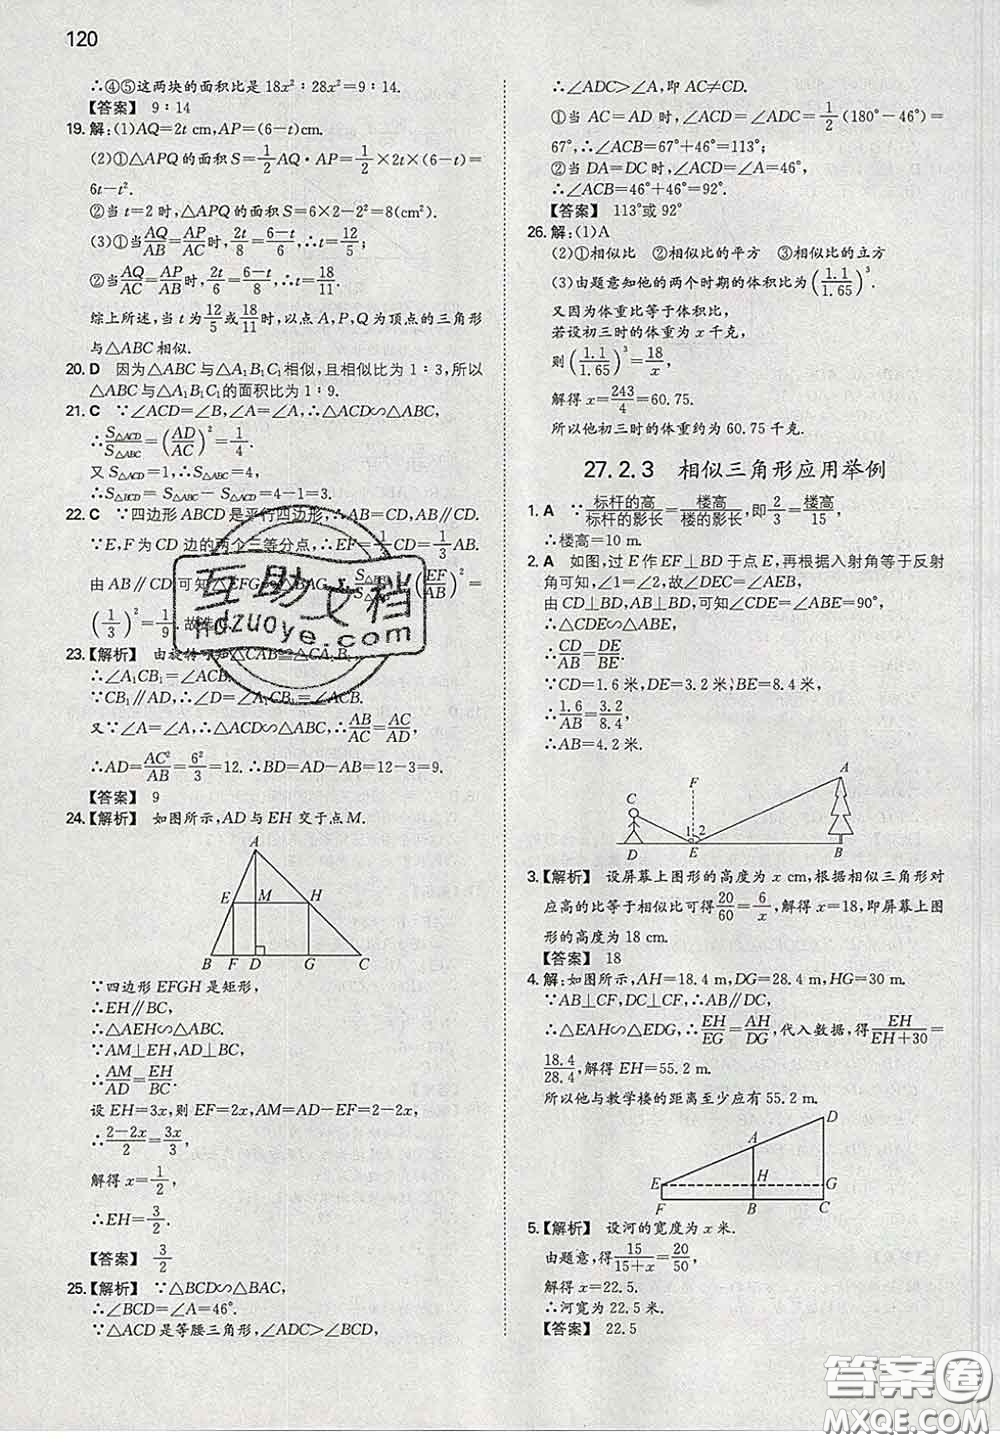 120
∴④⑤这两块的面积比是 18x²∶28x²=9∶14.
【答案】 9∶14
19. 解:(1)AQ=2t cm,AP=(6-t)cm.
(2)①△APQ 的面积 S=1/2 AQ·AP=1/2×2t×(6-t)=
6t-t².
②当 t=2 时,△APQ 的面积 S=6×2-2²=8(cm²).
(3)①当 AQ/AB=AP/AC 时,2t/8=6-t/6,∴t=12/5;
②当 AQ/AC=AP/AB 时,2t/6=6-t/8,∴t=18/11.
综上所述,当 t 为 12/5 或 18/11 时,以点 A,P,Q 为顶点的三角形
与△ABC 相似.
20. D 因为△ABC 与△A₁B₁C₁相似,且相似比为 1∶3,所以
△ABC 与△A₁B₁C₁的面积比为 1∶9.
21. C ∵∠ACD=∠B,∠A=∠A,∴△ACD∽△ABC,
∴S△ACD/S△ABC=(AD/AC)²=1/4.
又 S△ACD=1,∴S△ABC=4,
∴S△BCD=S△ABC-S△ACD=4-1=3.
22. C ∵四边形 ABCD 是平行四边形,∴AB=CD,AB∥CD.
∵E,F 为 CD 边的两个三等分点,∴EF=1/3 CD=1/3 AB.
由 AB∥CD 可知△EFG∽△BAG,∴S△EFG/S△BAG=(EF/AB)²=
(1/3)²=1/9.故选 C.
23.【解析】 由旋转可知△CAB≌△CA₁B₁,
∴∠A₁CB₁=∠ACB.
∵CB₁∥AD,∴∠D=∠A₁CB₁=∠ACB.
又∵∠A=∠A,∴△ACD∽△ABC,∴AB/AC=AC/AD,
∴AD=AC²/AB=6²/3=12.∴BD=AD-AB=12-3=9.
【答案】 9
24.【解析】 如图所示,AD 与 EH 交于点 M.
A
E M H
B F D G C
∵四边形 EFGH 是矩形,
∴EH∥BC.
∴△AEH∽△ABC.
∵AM⊥EH,AD⊥BC,
∴AM/AD=EH/BC.
设 EH=3x,则 EF=2x,AM=AD-EF=2-2x,
∴2-2x/2=3x/3,
解得 x=1/2,
∴EH=3/2.
【答案】 3/2
25.【解析】 ∵△BCD∽△BAC,
∴∠BCD=∠A=46°.
∵△ACD 是等腰三角形,∠ADC>∠BCD,
∴∠ADC>∠A,即 AC≠CD.
①当 AC=AD 时,∠ACD=∠ADC=1/2(180°-46°)=
67°,∴∠ACB=67°+46°=113°;
②当 DA=DC 时,∠ACD=∠A=46°,
∴∠ACB=46°+46°=92°.
【答案】 113°或 92°
26. 解:(1)A
(2)①相似比 ②相似比的平方 ③相似比的立方
(3)由题意知他的两个时期的体积比为(1.1/1.65)³
又因为体重比等于体积比,
若设初三时的体重为 x 千克,
则(1.1/1.65)³=18/x,
解得 x=243/4=60.75.
所以他初三时的体重约为 60.75 千克.
27.2.3 相似三角形应用举例
1. A ∵标杆的高/标杆的影长=楼高/楼的影长,即 2/3=楼高/15,
∴楼高=10 m.
2. A 如图,过 E 作 EF⊥BD 于点 E,再根据入射角等于反射
角可知,∠1=∠2,故∠DEC=∠AEB,
由 CD⊥BD,AB⊥BD,可知∠CDE=∠ABE=90°,
∴△CDE∽△ABE.
∴CD/AB=DE/BE.
∵CD=1.6 米,DE=3.2 米,BE=8.4 米,
∴1.6/AB=3.2/8.4.
∴AB=4.2 米.
F A
C
1 2
D E B
3.【解析】 设屏幕上图形的高度为 x cm,根据相似三角形对
应高的比等于相似比可得 20/60=6/x,解得 x=18,即屏幕上图
形的高度为 18 cm.
【答案】 18
4. 解:如图所示,AH=18.4 m,DG=28.4 m,HG=30 m.
∵AB⊥CF,DC⊥CF,∴AB∥DC,
∴△EAH∽△EDG,∴EH/EG=AH/DG,代入数据,得 EH/EH+30=
18.4/28.4,解得 EH=55.2 m.
所以他与教学楼的距离至少应有 55.2 m.
D
A
E H G
F B C
5.【解析】 设河的宽度为 x 米.
由题意,得 15/15+x=20/50,
解得 x=22.5.
∴河宽为 22.5 米.
【答案】 22.5
互助文档
Hdzuoye.com
答案圈
MXQE.COM